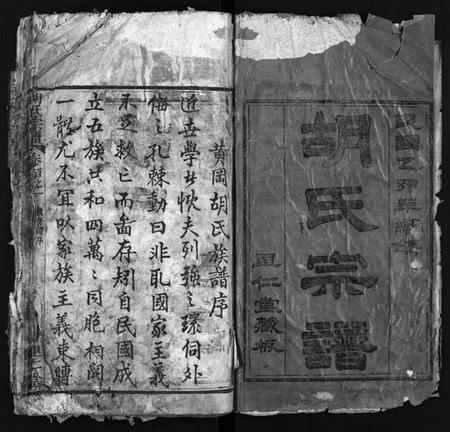 民國乙卯年續修
胡氏宗譜
同仁堂藏板
黃岡胡氏族譜序
近世學者忧夫列強之環伺外
侮之孔棘動曰非取國家主義
不足救亡而啚存矧自民國成
立五族共和四萬萬同胞相關
一體尤不冝以家族主義束縛